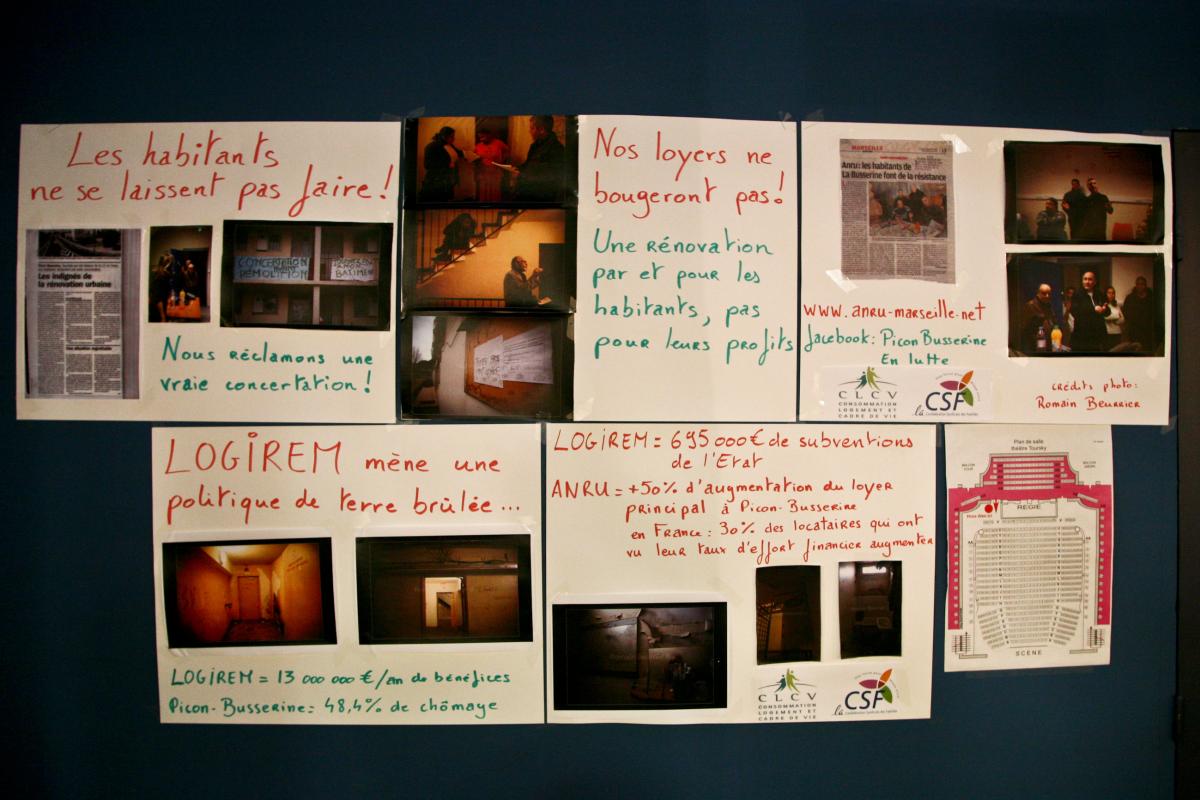 Les habitants
ne se laissent pas faire!
Les indignés de
la rénovation urbaine
CONCERTATION
DÉMOLITION
BATIMENT
Nous réclamons une
vraie concertation!
Nos loyers ne
bougeront pas!
Une rénovation
par et pour les
habitants, pas
pour leurs profits
MARSEILLE
Anru: les habitants de
La Busserine font de la résistance
www.anru-marseille.net
facebook: Picon Busserine
En lutte
CLCV
CONSOMMATION
LOGEMENT ET
CADRE DE VIE
la CSF
Confédération Syndicale des Familles
crédits photo:
Romain Beurrier
LOGIREM mène une
politique de terre brûlée...
LOGIREM = 13 000 000 €/an de bénéfices
Picon-Busserine = 48,4% de chômage
LOGIREM = 695 000 € de subventions
de l'Etat
ANRU = +50% d'augmentation du loyer
principal à Picon-Busserine
en France: 30% des locataires qui ont
vu leur taux d'effort financier augmenter
CLCV
CONSOMMATION
LOGEMENT ET
CADRE DE VIE
la CSF
Confédération Syndicale des Familles
Plan de salle
théâtre Toursky
REGIE
SCENE